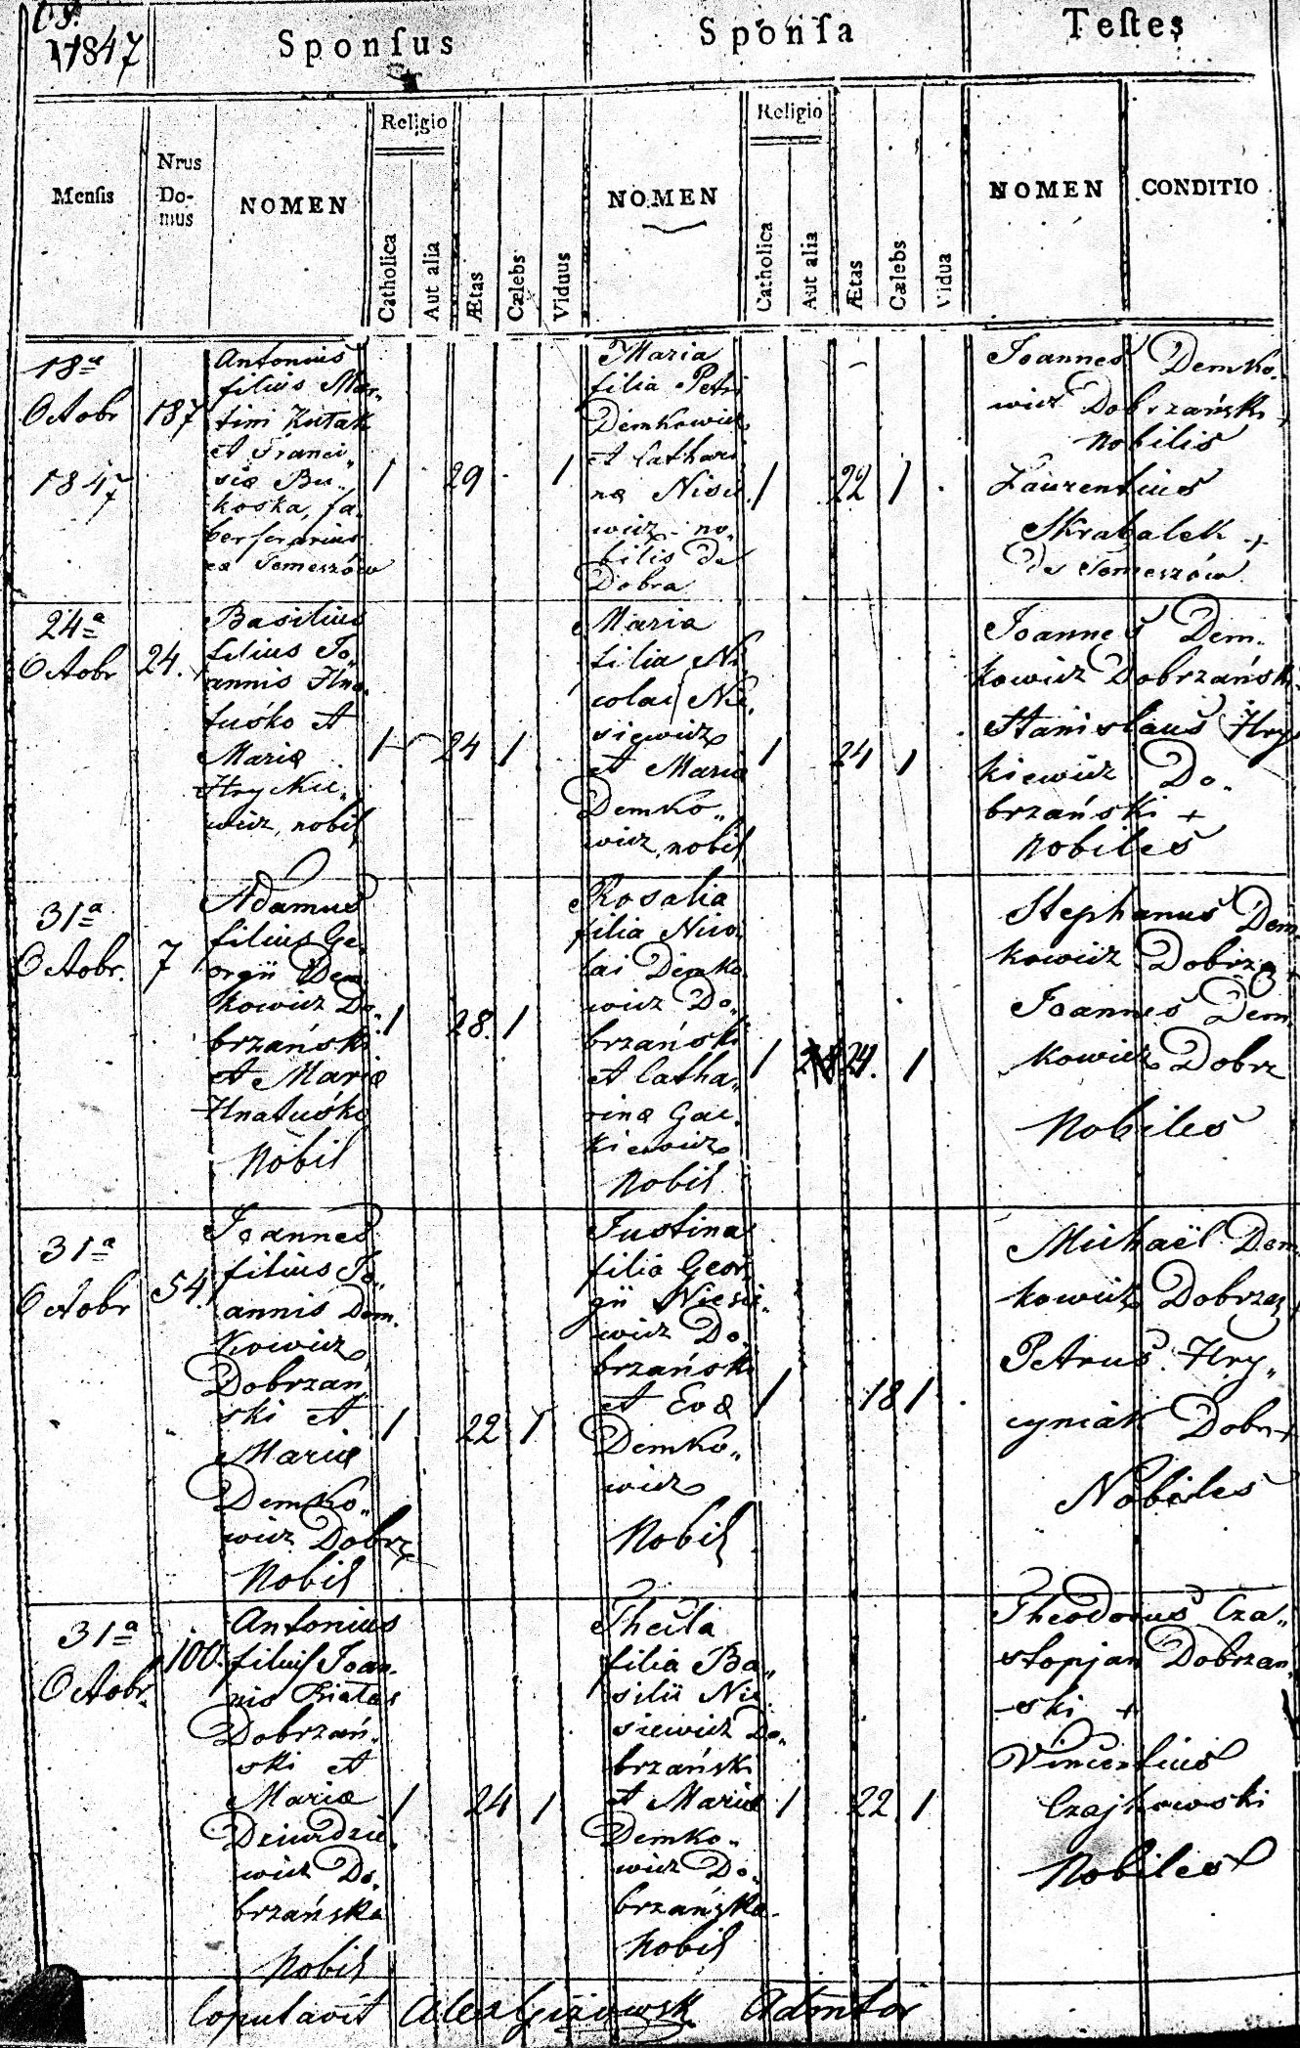 1847
Sponſus
Sponſa
Teſtes
Menſis
Nrus
Do-
mus
NOMEN
Religio
Catholica
Aut alia
Ætas
Cælebs
Viduus
NOMEN
Religio
Catholica
Aut alia
Ætas
Cælebs
Vidua
NOMEN
CONDITIO
18a
Octobr
1847
187
Antonius
filius Mar-
tini Kutak
et Franci„
sie Bu„
koska, fa-
ber ferarius
ex Temeszów
1 29 1
Maria
filia Petri
Demkowicz
et Cathari
næ Nisie
wicz no-
bilis de
Dobra
1 22 1
Joannes Demko-
wicz Dobrzański +
nobilis
Laurentius
Skrabalek +
de Temeszów
24a
Octobr
24.
Basilius
filius Jo-
annis Hna-
tuśko et
Mariæ
Hryckie„
wicz, nobil
1 24 1
Maria
filia Ni
colai Nie„
siewicz
et Mariæ
Demko„
wicz, nobil
1 24 1
Joannes Dem-
kowicz Dobrzański
Stanislaus Hry
kiewicz Do-
brzański +
nobiles
31a
Octobr.
7
Adamus
filius Ge-
orgii Dem
kowicz Do-
brzański
et Mariæ
Hnatuśko
Nobil
1 28. 1
Rosalia
filia Nico
lai Demko
wicz Do-
brzański
et Catha-
rinæ Gac-
kiewicz
Nobil
1 24. 1
Stephanus Dem-
kowicz Dobrza
Joannes Dem-
kowicz Dobrz
Nobiles
31a
Octobr
54.
Joannes
filius Jo„
annis Dem-
kowicz
Dobrzań
ski et
Mariæ
Demko„
wicz Dobrz
Nobil
1 22 1
Justina
filia Geor-
gii Niesie„
wicz Do-
brzański
et Evæ
Demko„
wicz
Nobil
1 18 1
Michaël Dem
kowicz Dobrzaz +
Petrus Hry„
cyniak Dobr +
Nobiles
31a
Octobr.
100.
Antonius
filius Joan-
nis Białas
Dobrzań-
ski et
Mariæ
Dziurdzie-
wicz Do-
brzańska
Nobil
1 24 1
Thecla
filia Ba„
silii Nie-
siewicz Do-
brzański
et Mariæ
Demko-
wicz Do-
brzańska
Nobil
1 22 1
Theodorus Cza„
stopjan Dobrzan
-ski +
Vincentius
Czajkowski
Nobiles
Copulavit Alex Giżowski Admtor